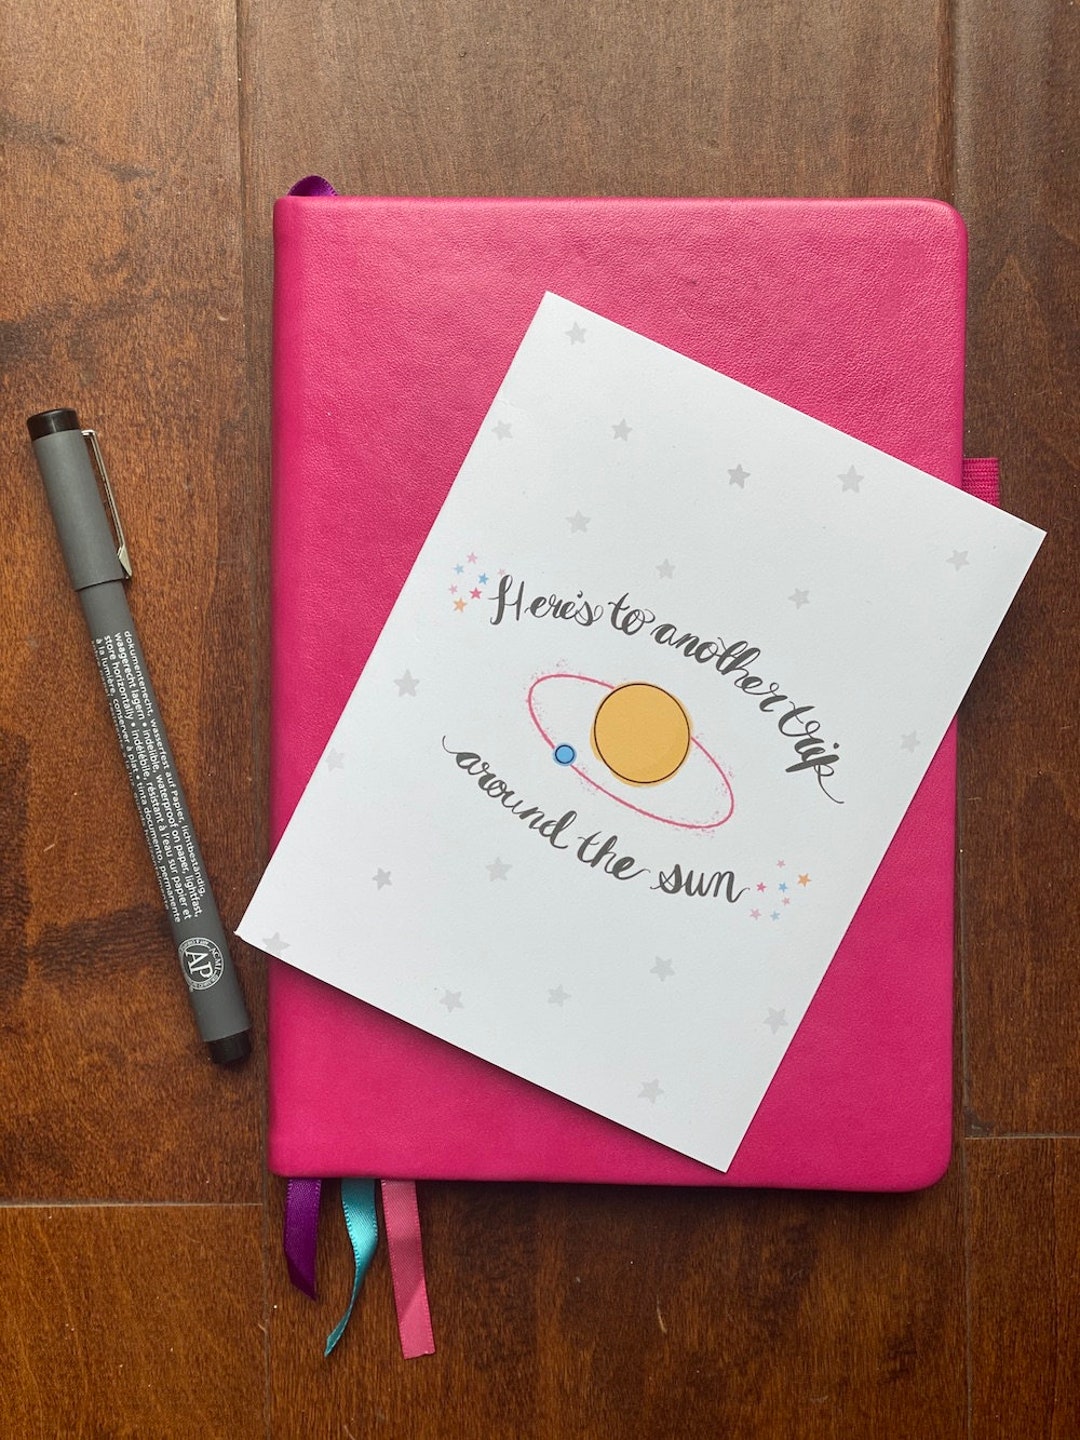 Here's to another trip
around the sun
dokumentenecht, wasserfest auf Papier, lichtbeständig,
waagerecht lagern • indelible, waterproof on paper, lightfast,
store horizontally • indélébile, résistant à l'eau sur papier et
à la lumière, conserver à plat • tinta documento, permanente
AP
ACMI